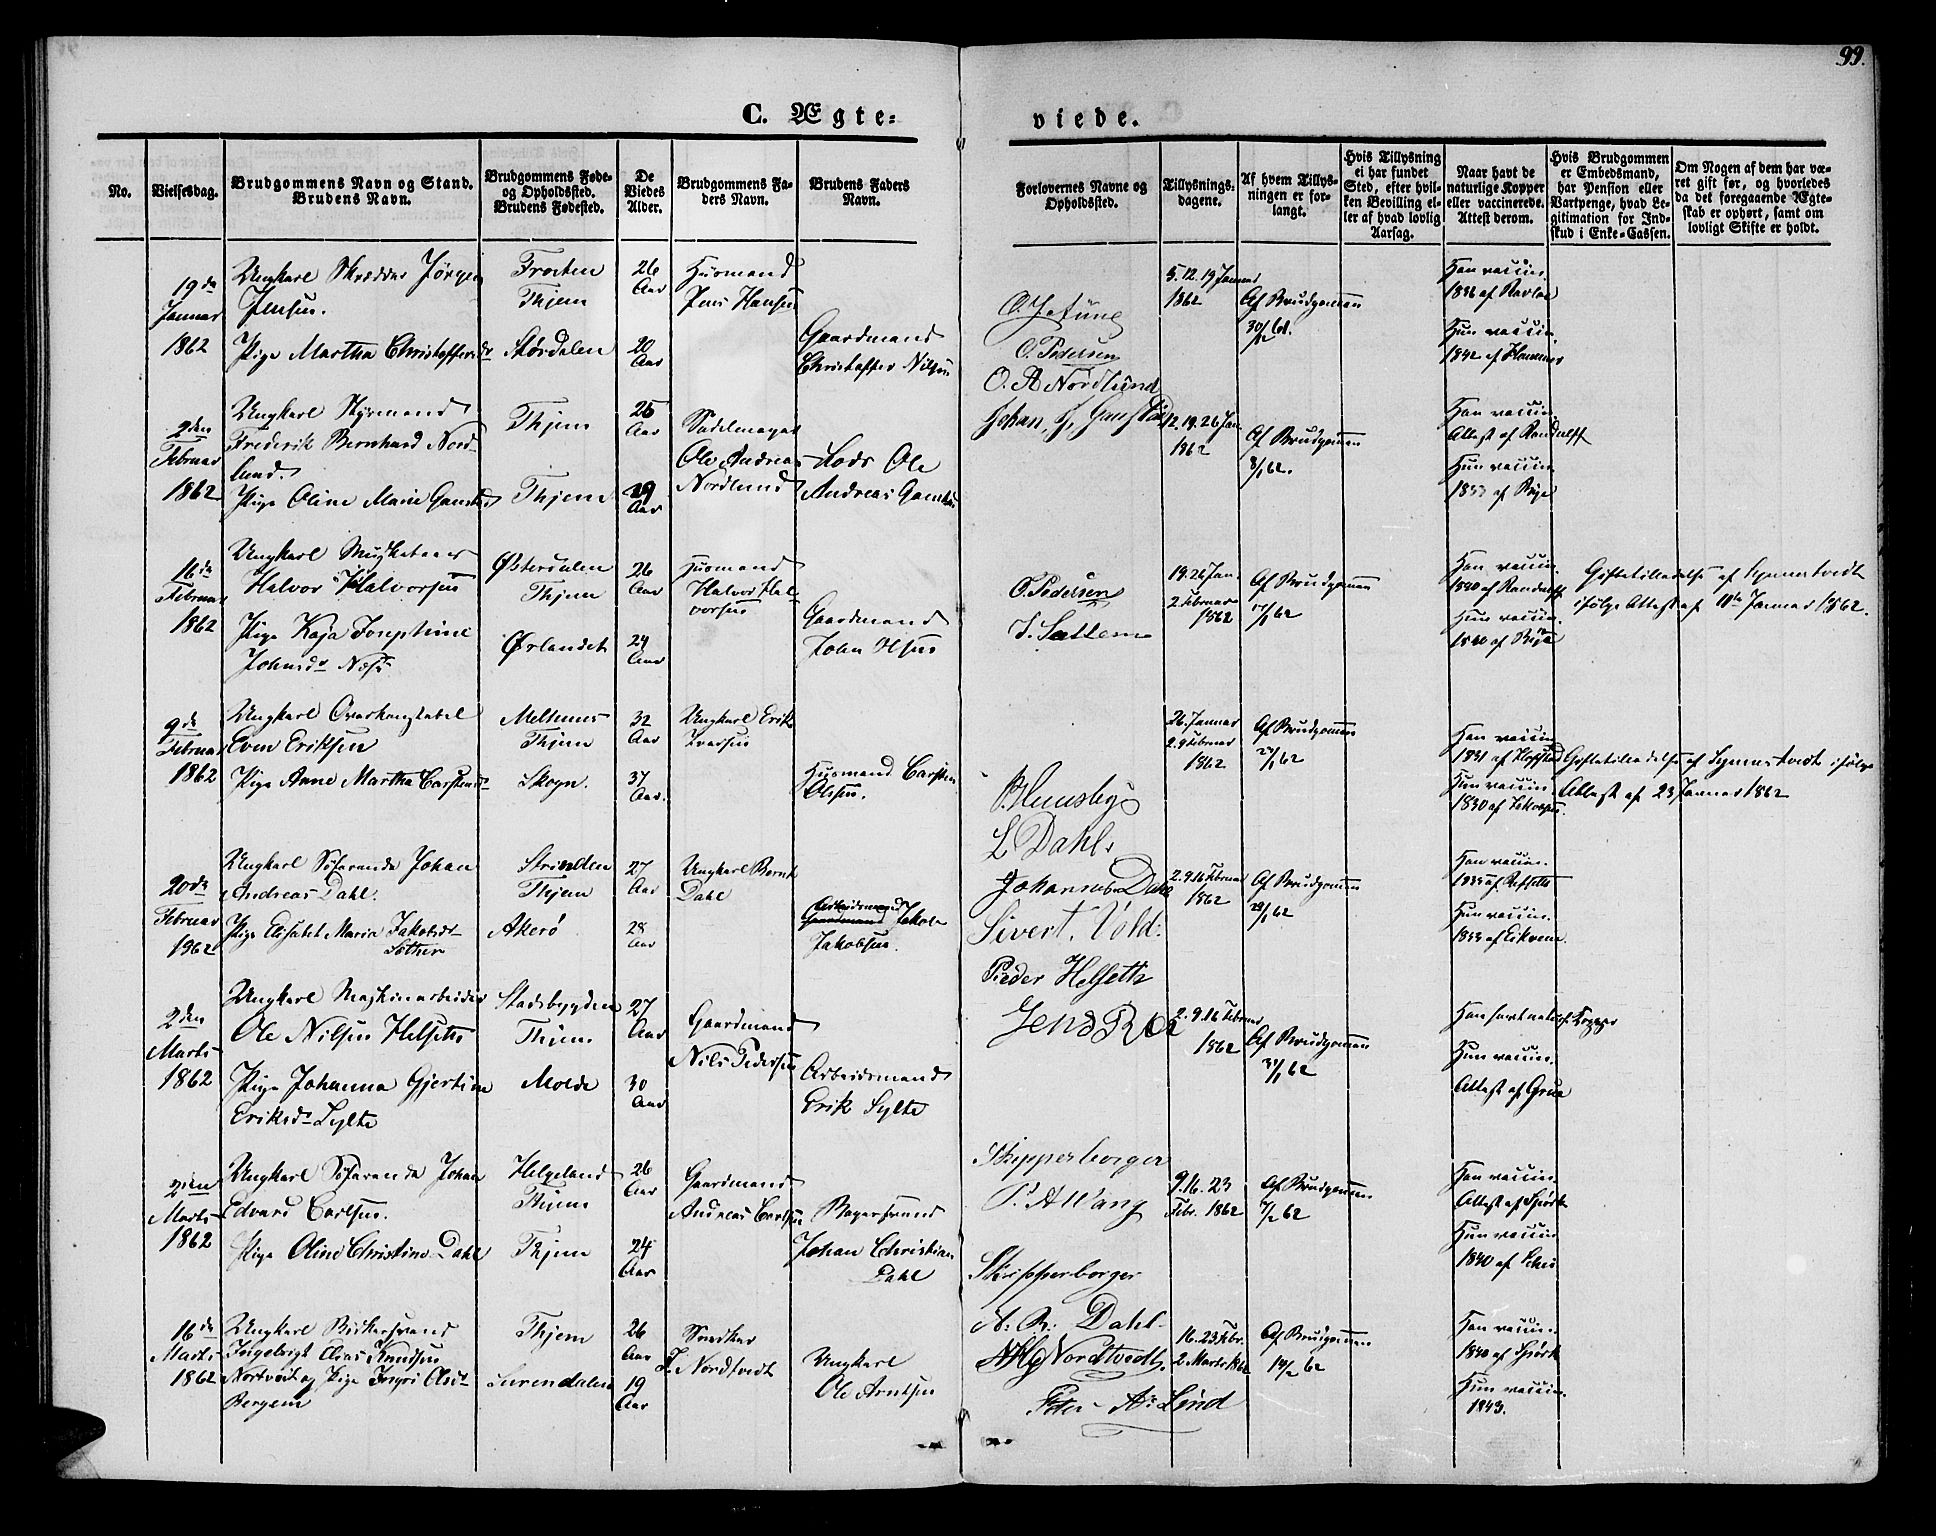 99.
C. Ægte=
viede.
No.
Vielsesdag.
Brudgommens Navn og Stand.
Brudens Navn.
Brudgommens Føde=
og Opholdssted.
Brudens Fødested.
De
Viedes
Alder.
Brudgommens Fa=
ders Navn.
Brudens Faders
Navn.
Forlovernes Navne og
Opholdssted.
Tillysnings=
dagene.
Af hvem Tillys=
ningen er for=
langt.
Hvis Tillysning
ei har fundet
Sted, efter hvil=
ken Bevilling el=
ler af hvad lovlig
Aarsag.
Naar havt de
naturlige Kopper
eller vaccinerede.
Attest derom.
Hvis Brudgommen
er Embedsmand,
har Pension eller
Vartpenge, hvad Le=
gitimation for Ind=
skud i Enke=Cassen.
Om Nogen af dem har væ=
ret gift før, og hvorledes
da det foregaaende Ægte=
skab er ophørt, samt om
lovligt Skifte er holdt.
19de
Januar
1862
Ungkarl Skrædder Jørgen
Jensen.
Pige Martha Christoffersdr
Frosten
Thjem
Størdalen
26
Aar
20
Aar
Husmand
Jens Hansen
Gaardmand
Christoffer Nilsen
O. Pedersen
5. 12. 19 Januar
1862
Af Brudgommen
Han vaccin.
1836 af
Hun vaccin.
1842 af Hammer
2den
Februar
1862
Ungkarl Styrmand
Frederik Bernhard Nord-
lund.
Pige Oline Marie
Thjem
Thjem
25
Aar
29
Aar
Sadelmager
Ole Andreas
Nordlund
Lods Ole
Andreas
O. A Nordlund
Johan
12. 19. 26 Jan.
1862
Af Brudgommen
8/1 62.
Han vaccin.
Attest af Randulff
Hun vaccin.
1833 af
16de
Februar
1862
Ungkarl Musketeer
Halvor Halvorsen
Pige Kaja Josephine
Johnsdr Næss
Østerdalen
Thjem
Ørlandet
26
Aar
24
Aar
Husmand
Halvor Hal-
vorsen
Gaardmand
John Olsen
O. Pedersen
19. 26 Jan.
2 Februar
1862
Af Brudgommen
17/1 62
Han vaccin.
1840 af Randulff
Hun vaccin.
1840 af
Giftetilladelse af
ifølge Attest af Januar 1862.
9de
Februar
1862
Ungkarl Overkonstabel
Even Eriksen
Pige Anne Martha Carstensdr
Melhuus
Thjem
Skogn.
32
Aar
37
Aar.
Ungkarl Erik
Iversen
Husmand Carsten
Olsen.
L Dahl.
26. Januar
2. 9 Februar
1862
Af Brudgommen
Han vaccin
1831 af
Hun vaccin
1830 af
Giftetilladelse af ifølge
Attest af 23 Januar 1862
20de
Februar
1962
Ungkarl Søfarende Johan
Andreas Dahl.
Pige Elisabet Maria Jakobsdr
Strinden
Thjem
Akerø
27
Aar
28
Aar
Ungkarl Bernt
Dahl
Arbeidsmand
Gaardmand Jakob
Jakobsen.
Johannes Dahl
Sivert. Vold.
2. 9. 16 Februar
1862
Af Brudgommen
Han vaccin.
1835 af
Hun vaccin.
1833 af
2den
Marts
1862
Ungkarl Maskinarbeider
Ole Nilsen Helseth
Pige Johanna Gjertine
Eriksdr Sylte
Stadsbygden
Thjem
Molde
27
Aar
30
Aar
Gaardmand
Nils Pedersen
Arbeidsmand
Erik Sylte
Peder Helseth
Jens Roe
2. 9. 16 Februar
1862
Af Brudgommen
31/1 62
Han havt naturl. Kopper
Hun vaccin.
Attest af
2den
Marts
1862
Ungkarl Søfarende Johan
Edvard Carlsen.
Pige Oline Christine Dahl
Helgeland
Thjem
Thjem
26
Aar
24
Aar
Gaardmand
Andreas Carlsen
Bagersvend
Johan Christian
Dahl
Skipperborger
P. A Wang
Skipperborger
A. B. Dahl
9. 16. 23
Febr. 1862
Af Brudgommen
7/2 62
Han vaccin
Attest af
Hun vaccin
1840 af
16de
Marts
1862
Ungkarl
Ingebrigt Knudsen
Nortvedt og Pige Ingri Olsdr
Bergem
Thjem
Surendalen
26
Aar
19
Aar
Snedker
J. Nordtvedt
Ungkarl
Ole Arntsen
Nordtvedt.
Peter A. Lind
16. 23 Febr.
2 Marts 1862
Af Brudgommen
14/2 62
Han vaccin.
1840 af
Hun vaccin.
1843.